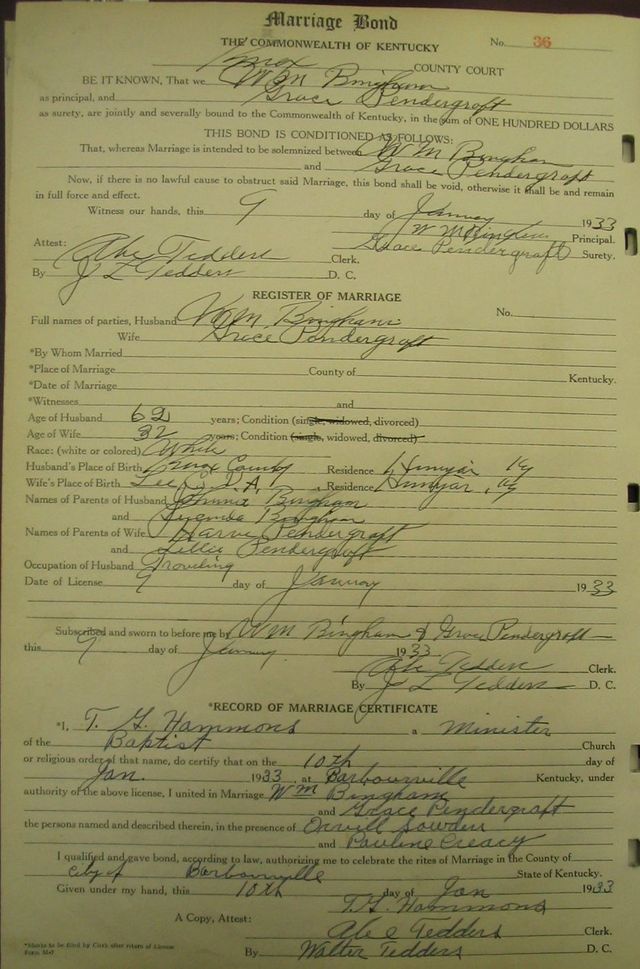 Marriage Bond
THE COMMONWEALTH OF KENTUCKY No. 36
Knox COUNTY COURT
BE IT KNOWN, That we Wm Bingham
as principal, and Grace Pendergraft
as surety, are jointly and severally bound to the Commonwealth of Kentucky, in the sum of ONE HUNDRED DOLLARS
THIS BOND IS CONDITIONED AS FOLLOWS:
That, whereas Marriage is intended to be solemnized between Wm Bingham
and Grace Pendergraft
Now, if there is no lawful cause to obstruct said Marriage, this bond shall be void, otherwise it shall be and remain
in full force and effect.
Witness our hands, this 9 day of January 1933
Wm Bingham Principal.
Attest: Grace Pendergraft Surety.
Abe Tedders Clerk.
By J L Tedders D. C.
REGISTER OF MARRIAGE
Full names of parties, Husband Wm Bingham No.
Wife Grace Pendergraft
*By Whom Married
*Place of Marriage County of Kentucky.
*Date of Marriage
*Witnesses and
Age of Husband 62 years; Condition (single, widowed, divorced)
Age of Wife 32 years; Condition (single, widowed, divorced)
Race: (white or colored) White
Husband's Place of Birth Knox County Residence Himyar Ky
Wife's Place of Birth Lee Co., Residence Himyar, Ky
Names of Parents of Husband Bingham
and Bingham
Names of Parents of Wife Harve Pendergraft
and Lillie Pendergraft
Occupation of Husband
Date of License 9 day of January 1933
Subscribed and sworn to before me by Wm Bingham & Grace Pendergraft
this 9 day of January 1933
Abe Tedders Clerk.
By J L Tedders D. C.
*RECORD OF MARRIAGE CERTIFICATE
*I, T. G. Hammons a Minister
of the Baptist Church
or religious order of that name, do certify that on the 10th day of
Jan. 1933, at Barbourville Kentucky, under
authority of the above license, I united in Marriage Wm Bingham
and Grace Pendergraft
the persons named and described therein, in the presence of Orvill Sowders
and Pauline Creacy
I qualified and gave bond, according to law, authorizing me to celebrate the rites of Marriage in the County of
City of Barbourville State of Kentucky.
Given under my hand, this 10th day of Jan 1933
T. G. Hammons
A Copy, Attest: Abe Tedders Clerk.
By Walter Tedders D. C.
*Blanks to be filed by Clerk after return of License